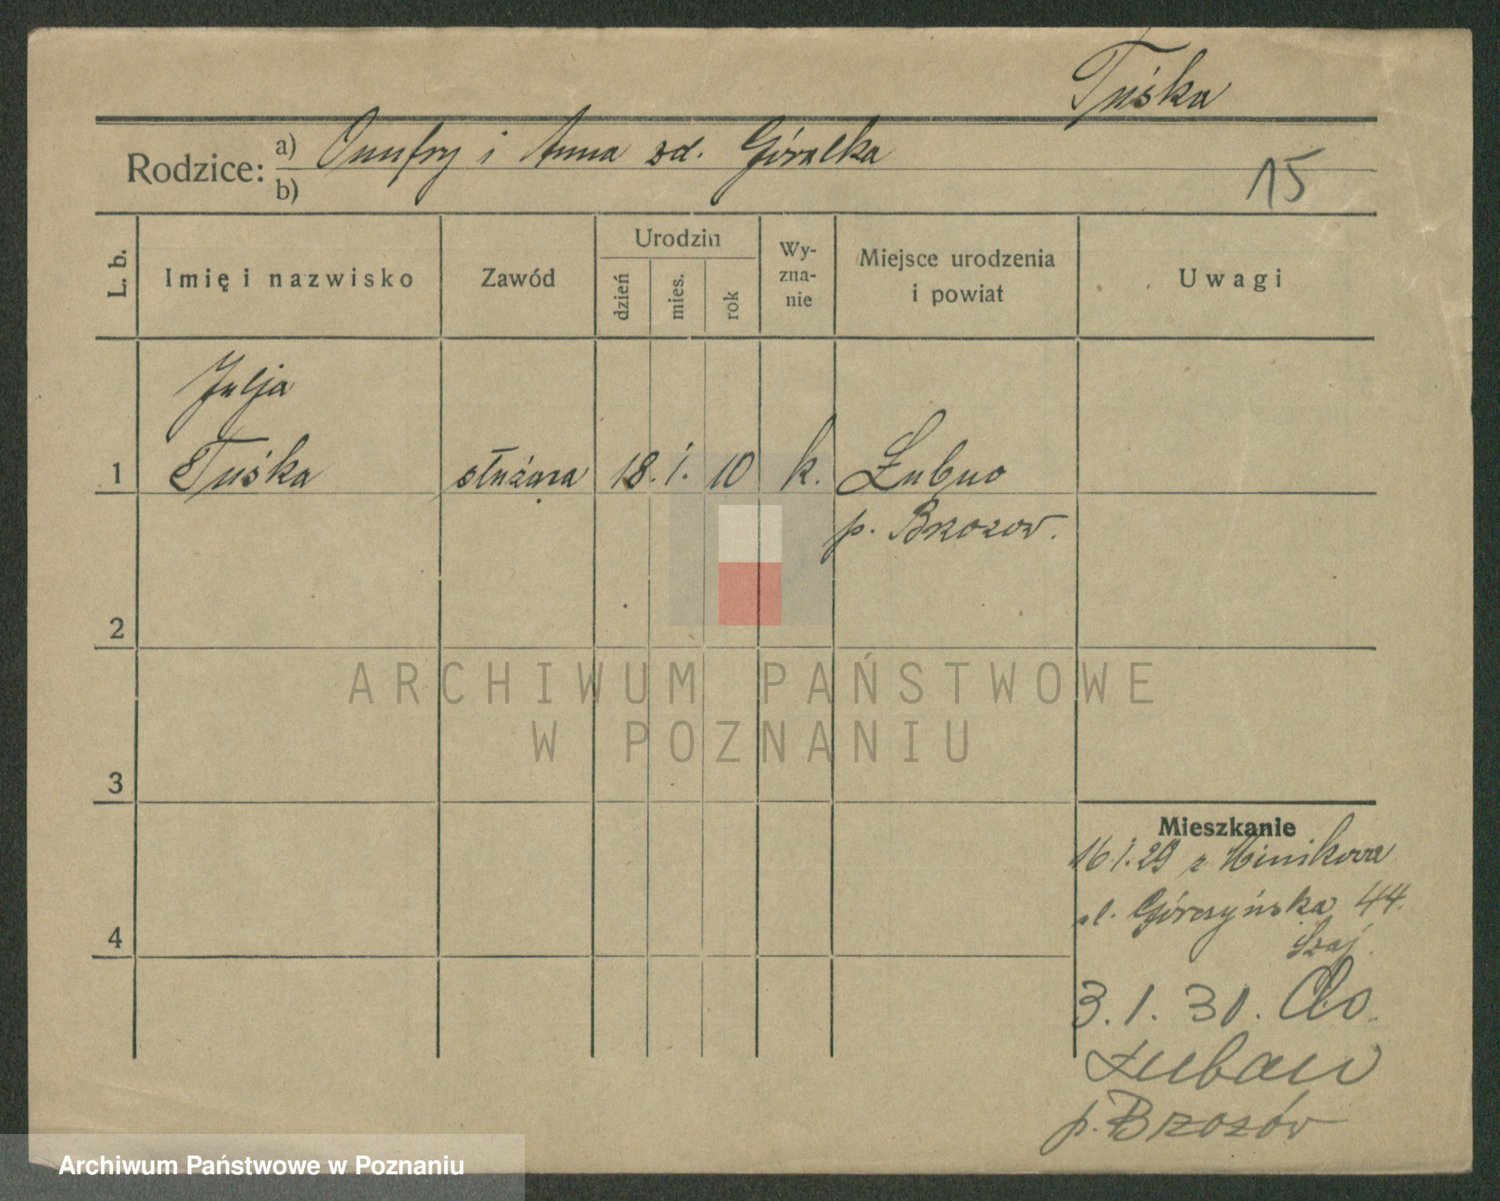 Tuśka
Rodzice: a) Onufry i Anna zd. Góralka
b)
15
L. b.
Imię i nazwisko
Zawód
Urodzin
dzień
mies.
rok
Wy-
zna-
nie
Miejsce urodzenia
i powiat
Uwagi
Julja
1 Tuśka służąca 18. 1. 10 k. Łubno
p. Brzozow.
2
3
4
Mieszkanie
16 1. 29 z
ul. Górczyńska 44.
3. 1. 30. Do
p. Brzozów
ARCHIWUM PAŃSTWOWE
W POZNANIU
Archiwum Państwowe w Poznaniu